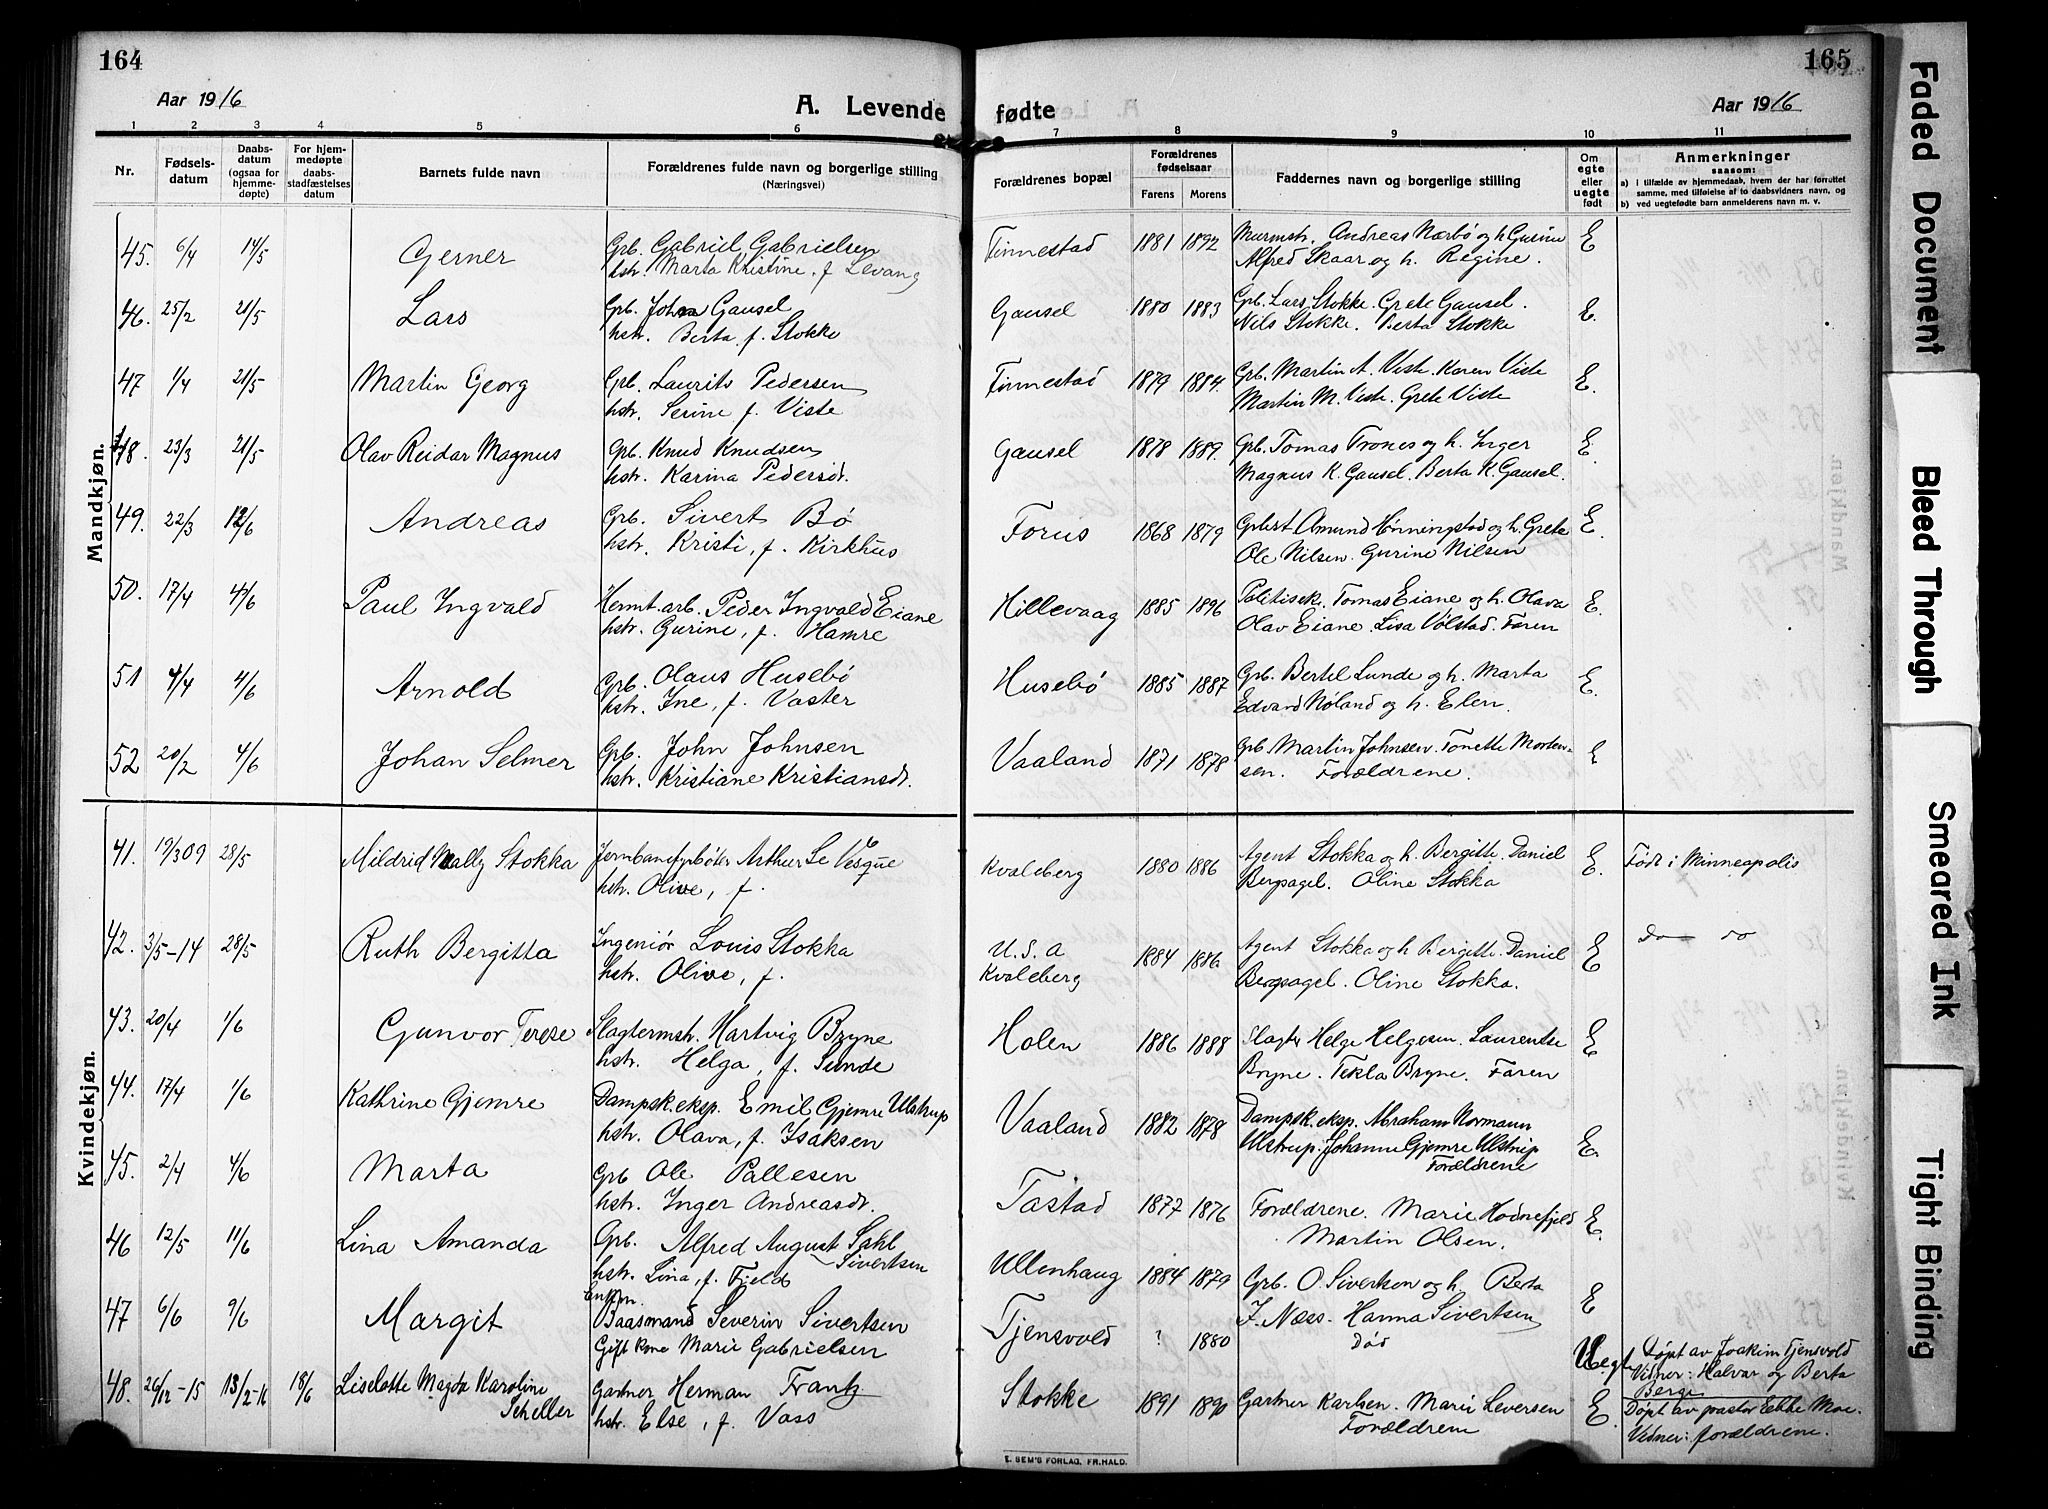 164
165
Aar 1916
A. Levende fødte
Aar 1916
1 2 3 4 5 6 7 8 9 10 11
Nr.
Fødsels-datum
Daabs-datum (ogsaa for hjemme-døpte)
For hjem-medøpte daabs-stadfæstelses datum
Barnets fulde navn
Forældrenes fulde navn og borgerlige stilling (Næringsvei)
Forældrenes bopæl
Forældrenes fødselsaar
Farens Morens
Faddernes navn og borgerlige stilling
Om egte eller uegte født
Anmerkninger
saasom:
a) i tilfælde av hjemmedaab, hvem der har forrettet samme, med tilføielse af to daabsvidners navn, og
b) ved uegtefødte barn anmelderens navn m. v.
Mandkjøn.
45. 6/4 14/5 Gerner Grb. Gabriel Gabrielsen Tinnestad 1881 1892 Murmstr. Andreas Nærbø og h. Gurine E
hstr. Marta Kristine, f. Levang Alfred Skaar og h. Regine.
46. 25/2 21/5 Lars Grb. John Gausel Gausel 1880 1883 Grb. Lars Stokke. Grete Gausel. E.
hstr. Berta f. Stokke Nils Stokke. Berta Stokke
47 1/4 21/5 Martin Georg Grb. Laurits Pedersen Tinnestad 1879 1884. Grb. Martin A. Viste. Karen Viste E.
hstr. Serine f. Viste Martin M. Viste. Grete Viste
48. 23/3 21/5 Olav Reidar Magnus Grb. Knud Knudsen Gausel 1878 1889. Grb. Tomas Trones og h. Inger E.
hstr. Karina Pedersdt. Magnus K. Gausel. Berta K. Gausel.
49. 22/3 12/6 Andreas Grb. Sivert Bø Forus 1868 1879 Grbest. Amund Hønningstad og h. Grete E.
hstr. Kristi, f. Kirkhus Ole Nilsen. Gurine Nilsen
50. 17/4 4/6 Paul Ingvald Hermt. arb. Peder Ingvald Eiane Hillevaag 1885 1896 Politisek. Tomas Eiane og h. Olava E.
hstr. Gurine, f. Hamre Olav Eiane. Lisa Vølstad. Faren
51 4/4 4/6 Arnold Grb. Olaus Husebø Husebø 1885 1887 Grb. Bertel Lunde og h. Marta E.
hstr. Ine, f. Vaster Edvard Nøland og h. Elen.
52 20/2 4/6 Johan Selmer Grb. John Johnsen Vaaland 1871 1878 Grb. Martin Johnsen. Tonette Morten- E
hstr. Kristiane Kristiansdt. sen. Forældrene.
Kvindekjøn.
41. 19/3 09 28/5 Mildrid Nally Stokka Jernbanefyrbøter Arthur Le Vesque Kvaleberg 1880 1886 Agent Stokka og h. Bergitte. Daniel E. Født i Minneapolis
hstr. Olive, f. Bergsagel. Oline Stokka
42. 3/5-14 28/5 Ruth Bergitta Ingeniør Louis Stokka U.S.A 1884 1886 Agent Stokka og h. Bergitte. Daniel E do do
hstr. Olive, f. Kvaleberg Bergsagel. Oline Stokka.
43. 20/4 1/6 Gunvor Terese Slagtermstr. Hartvig Bryne Holen 1886 1888 Slagter Helge Helgesen. Laurentse E
hstr. Helga, f. Sunde Bryne. Tekla Bryne. Faren
44. 17/4 1/6 Kathrine Gjemre Dampsk.eksp. Emil Gjemre Ulstrup Vaaland 1882 1878 Dampsk.eksp. Abraham Normann
hstr. Olava, f. Isaksen Ulstrup. Johanne Gjemre Ulstrup E.
Forældrene
45. 2/4 4/6 Marta Grb Ole Pallesen Tastad 1877 1876 Forældrene. Marie Hodnefjeld E.
hstr. Inger Andreasdt. Martin Olsen.
46 12/5 11/6 Lina Amanda Grb. Alfred August Sakl Sivertsen Ullenhaug 1884 1879 Grb. O. Sivertsen og h. Berta E
hstr. Lina, f. Fjeld J. Næss. Hanna Sivertsen
47 6/6 9/6 Margit Enkm. Baasmand Severin Sivertsen Tjensvold ? 1880 Død Uegte Døpt av Joakim Tjensvold
Gift Kone Marie Gabrielsen Vidner: Halvar og Berta Berge
48. 26/12-15 13/2-16 18/6 Liselotte Magda Karoline Scheller Gartner Herman Frantz Stokke 1891 1890 Gartner Karlsen. Marie Seversen E. Døpt av pastor Ebbe Moe.
hstr. Else, f. Voss Forældrene Vidner: forældrene.
E. SEM'S FORLAG, FR.HALD.
Faded Document
Bleed Through
Smeared Ink
Tight Binding